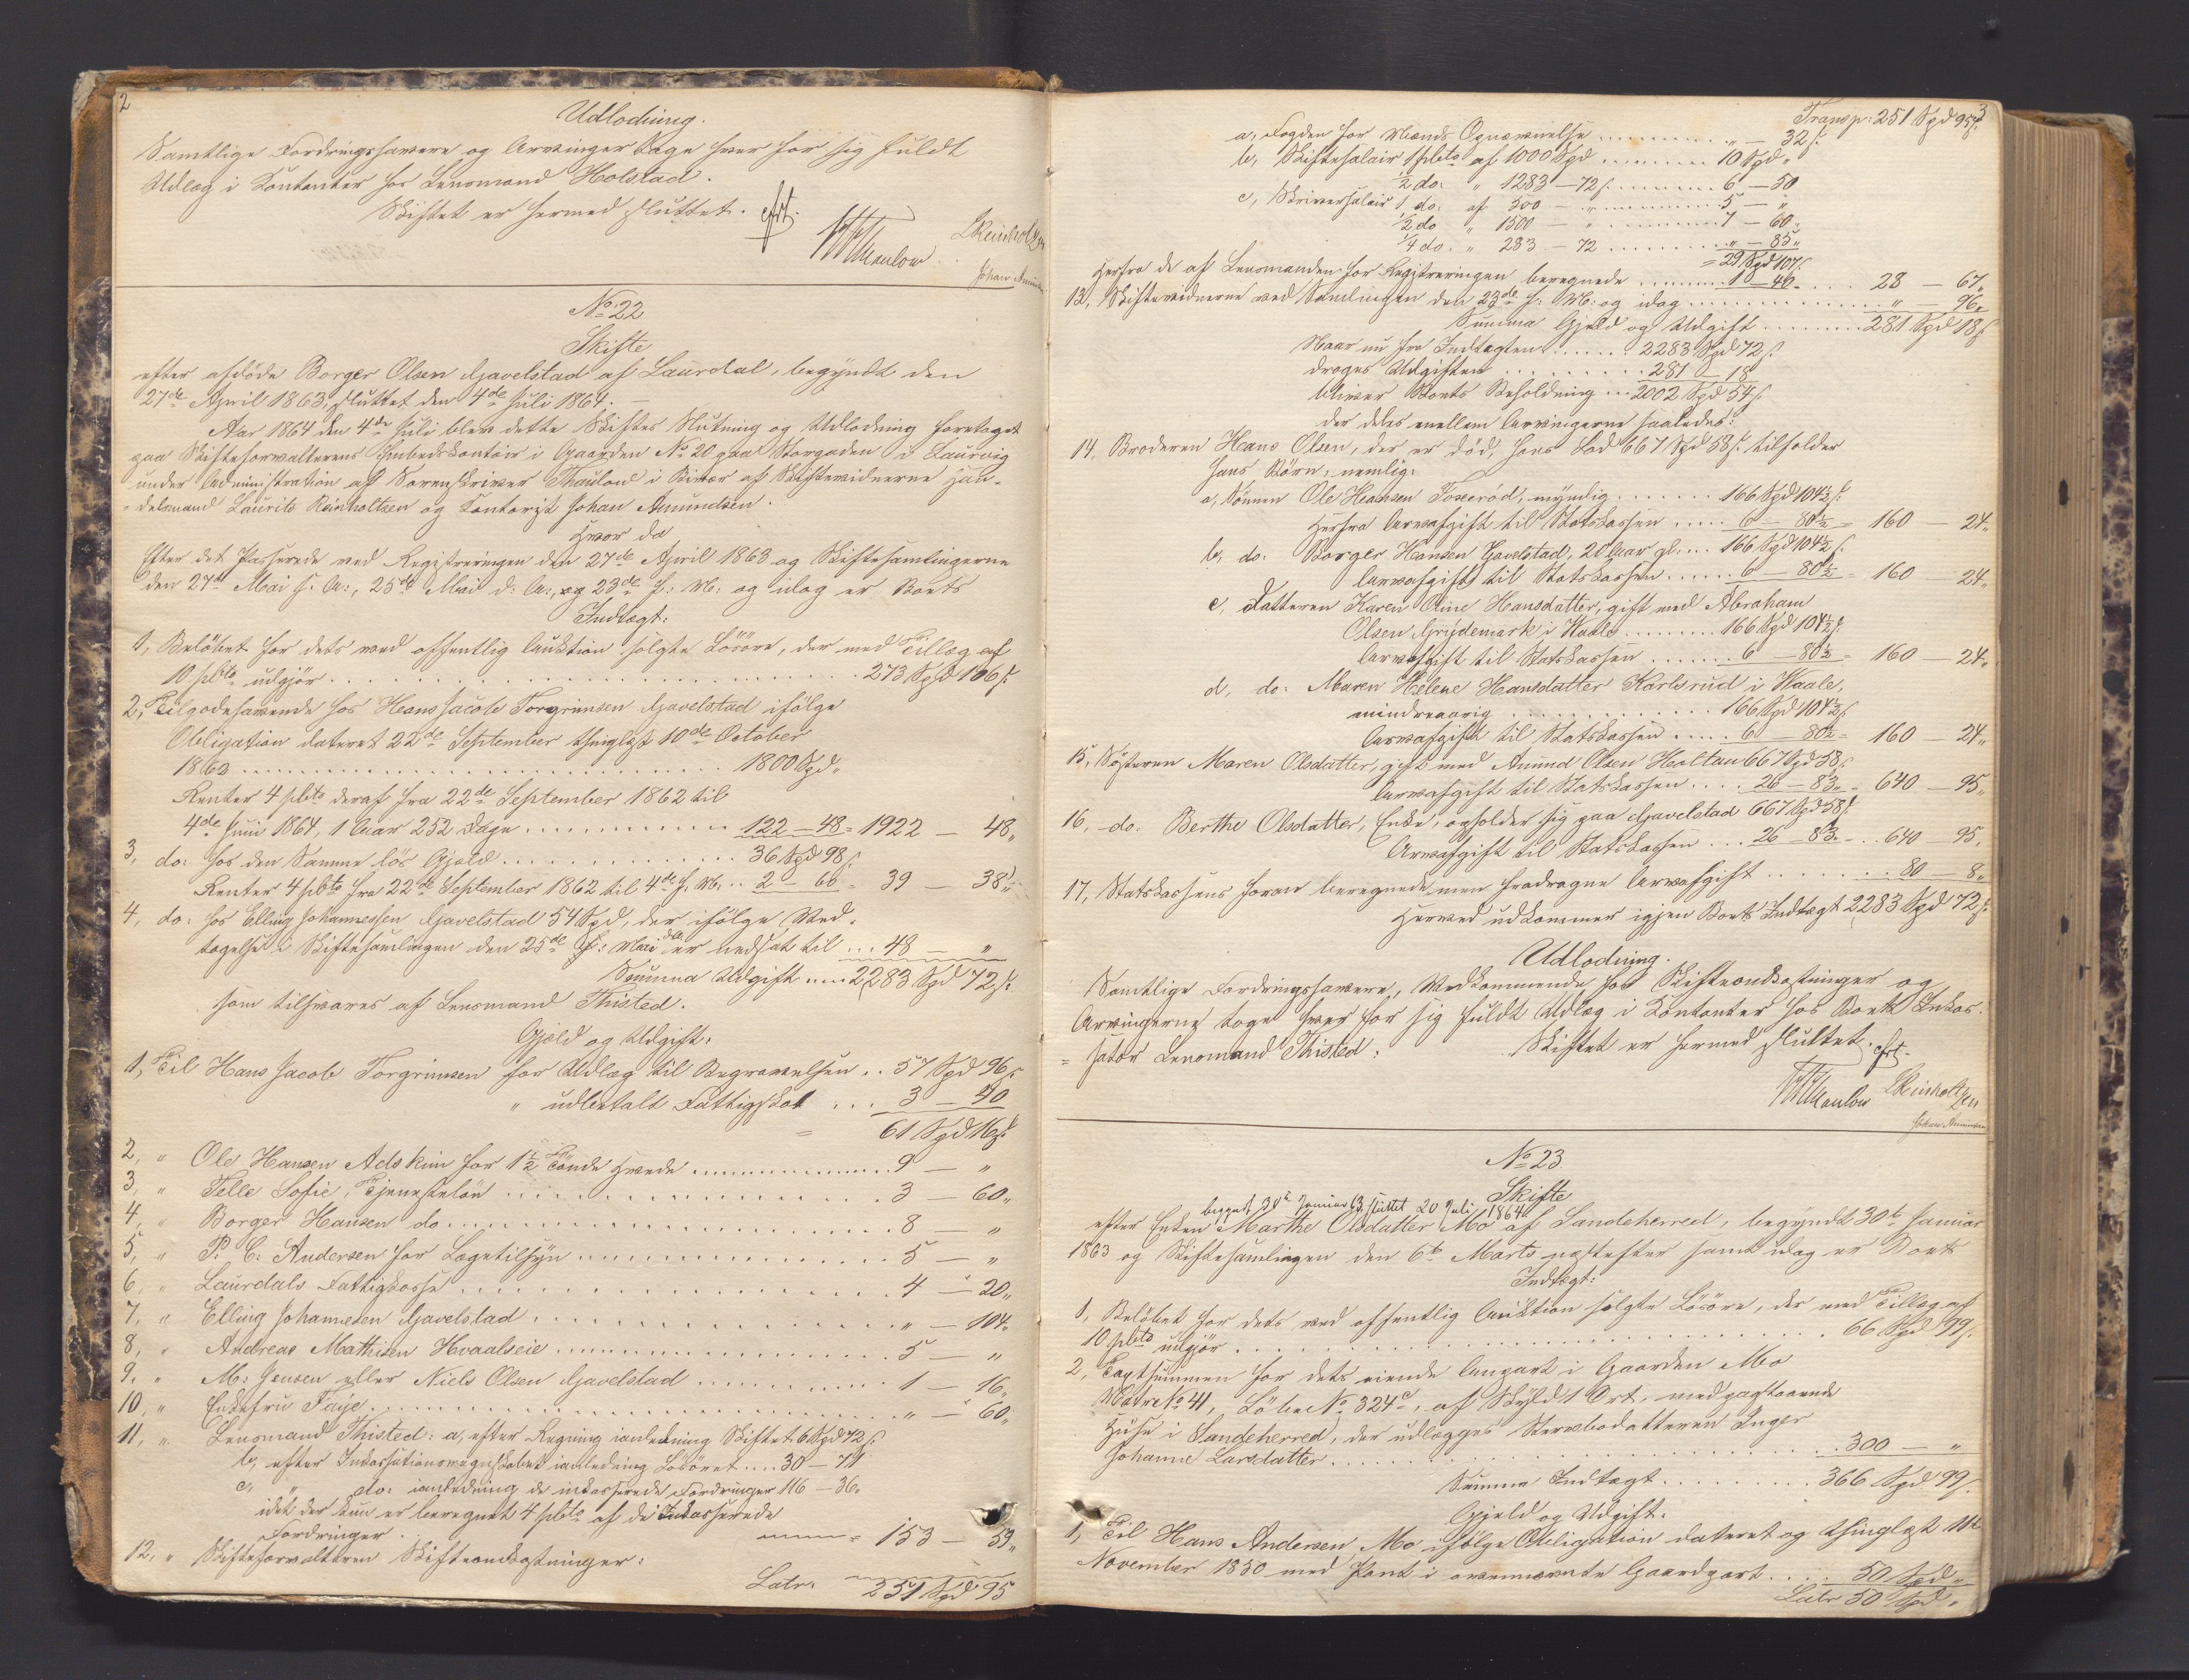 2
Udlodning.
Samtlige Fordringshavere og Arvinger tage hver for sig fuldt
Udlæg i Contanter hos Lensmand Holstad.
Skiftet er hermed sluttet.
Thaulow LReinholtzen
Johan Amundsen
No 22
Skifte
efter afdöde Borger Olsen Gavelstad af Laurdal, begyndt den
27de April 1863, sluttet den 4de Juli 1864. —
Aar 1864 den 4de Juli blev dette Skiftes Slutning og Udlodning foretaget
paa Skifteforvalterens Embedskontoir i Gaarden No 20 paa Storgaden i Laurvig
under Administration af Sorenskriver Thaulow i Bivær af Skiftevidnerne Han-
delsmand Laurits Reinholtzen og Contorist Johan Amundsen.
Hvor da
Efter det Passerede ved Registreringen den 27de April 1863 og Skiftesamlingerne
den 27de Mai s: A:, 25de Mai d: A:, og 23de f: M: og idag er Boets
Indtægt:
1, Belöbet for dets ved offentlig Auktion solgte Lösöre, der med Tillæg af
10 pCto udgjör 273 Spd 106 s:
2, Tilgodehavende hos Hans Jacob Torgrimsen Gavelstad ifölge
Obligation dateret 22de September thinglæst 10de October
1862 1800 Spd „
Renter 4 pCto deraf fra 22de September 1862 til
4de Juni 1864, 1 Aar 252 Dage 122 — 48 = 1922 — 48„
3, do: hos den Samme lös Gjæld 36 Spd 98 s.
Renter 4 pCto fra 22de September 1862 til 4de f. M. 2 — 60 = 39 — 38„
4, do: hos Elling Johannessen Gavelstad 54 Spd, der ifölge Ved-
tagelse i Skiftesamlingen den 25de Mai er nedsat til 48 — „
Summa Udgift 2283 Spd 72 s:
som tilsvares af Lensmand Thisted.
Gjæld og Udgift:
1, Til Hans Jacob Torgrimsen for Udlæg til Begravelsen 57 Spd 96 s:
„ udbetalt Fattigskat 3 — 40
= 61 Spd 16 s:
2, „ Ole Hansen Adskim for 1½ Tönde Hvede 9 — „
3, „ Telle Sofie, Tjenestelön 3 — 60„
4, „ Borger Hansen do 8 — „
5, „ P. C. Andersen for Lægetilsyn 5 — „
6, „ Laurdals Fattigkasse 4 — 20„
7, „ Elling Johannesen Gavelstad „ — 104„
8, „ Andreas Mathisen Hvaalseie 5 — „
9, „ M: Jensen eller Niels Olsen Gavelstad 1 — 16„
10, „ Enkefru Faye „ — 60„
11, „ Lensmand Thisted: a, efter Regning ianledning Skiftet 6 Spd 72 s:
b, efter Inkassationsregnskabet ianledning Lösöret 30 — 71
c, „ do: ianledning de inkasserede Fordringer 116 — 36„
idet der kun er beregnet 4 pCto af de Inkasserede
Fordringer = 153 — 59„
12, „ Skifteforvalteren Skifteomkostninger:
Latr: 251 Spd 95
3
Transp: 251 Spd 95 s.
a, Fogden for Mænds Opnævnelse „ — 32 s:
b, Skiftesalair 1 pCto af 1000 Spd 10 Spd „
½ do: „ 1283 — 72 s: 6 — 50
c, Skriversalair 1 do: af 500 — „ 5 — „
½ do „ 1500 — „ 7 — 60„
¼ do. „ 283 — 72 „ — 85„
= 29 Spd 107 s.
Herfra de af Lensmanden for Registreringen beregnede 1 — 40 28 — 67„
13, Skiftevidnerne ved Samlingen den 23de f: M: og idag „ — 96„
Summa Gjæld og Udgift 281 Spd 18 s
Naar nu fra Indtægten 2283 Spd 72 s:
drages Udgiften 281 — 18
bliver Boets Beholdning 2002 Spd 54 s:
der deles mellem Arvingerne saaledes:
14, Broderen Hans Olsen, der er död, hans Lod 667 Spd 58 s: tilfalder
hans Börn, nemlig:
a, Sönnen Ole Hansen Foxeröd, myndig 166 Spd 104½ s:
Herfra Arveafgift til Statskassen 6 — 80½ = 160 — 24„
b, do: Borger Hansen Gavelstad, 20 Aar gl. 166 Spd 104½ s:
Arveafgift til Statskassen 6 — 80½ = 160 — 24„
c, Datteren Karen Oline Hansdatter, gift med Abraham
Olsen Grydemark i Waale 166 Spd 104½ s:
Arveafgift til Statskassen 6 — 80½ = 160 — 24„
d, do: Maren Helene Hansdatter Karlsrud i Waale,
mindreaarig 166 Spd 104½ s:
Arveafgift til Statskassen 6 — 80½ = 160 — 24„
15, Sösteren Maren Olsdatter, gift med Amund Olsen Holtan 667 Spd 58 s.
Arveafgift til Statskassen 26 — 83„ = 640 — 95„
16, do: Berthe Olsdatter, Enke, opholder sig paa Gavelstad 667 Spd 58 s.
Arveafgift til Statskassen 26 — 83„ 640 95„
17, Statskassens foran beregnede men fradragne Arveafgift 80 — 8„
Herved udkommer igjen Boets Indtægt 2283 Spd 72 s:
Udlodning.
Samtlige Fordringshavere, Vedkommende for Skifteomkostninger og
Arvingerne tage hver for sig fuldt Udlæg i Contanter hos Boets Inkas-
sator Lensmand Thisted:
Skiftet er hermed sluttet.
Thaulow LReinholtzen
Johan Amundsen
No 23
Skifte
begynt 30te Januar 63, sluttet 20 Juli 1864
efter Enken Marthe Olsdatter Mo af Sandeherred, begyndt 30te Januar
1863 og Skiftesamlingen den 6te Marts næstefter samt idag er Boets
Indtægt:
1, Belöbet for dets ved offentlig Auktion solgte Lösöre, der med Tillæg af
10 pCto udgjör 66 Spd 99 s.
2, Taxtsummen for dets eiende Anpart i Gaarden Mo
Matr No 41, Löbe No 324c, af Skyld 1 Ort, med paastaaende
Huse i Sandeherred, der udlægges Stervbodatteren Inger
Johanne Larsdatter 300 — „
Summa Indtægt 366 Spd 99 s.
Gjæld og Udgift.
1, Til Hans Andersen Mo ifölge Obligation dateret og thinglæst 11te
November 1850 med Pant i ovennævnte Gaardpart 50 Spd „
Latr 50 Spd „